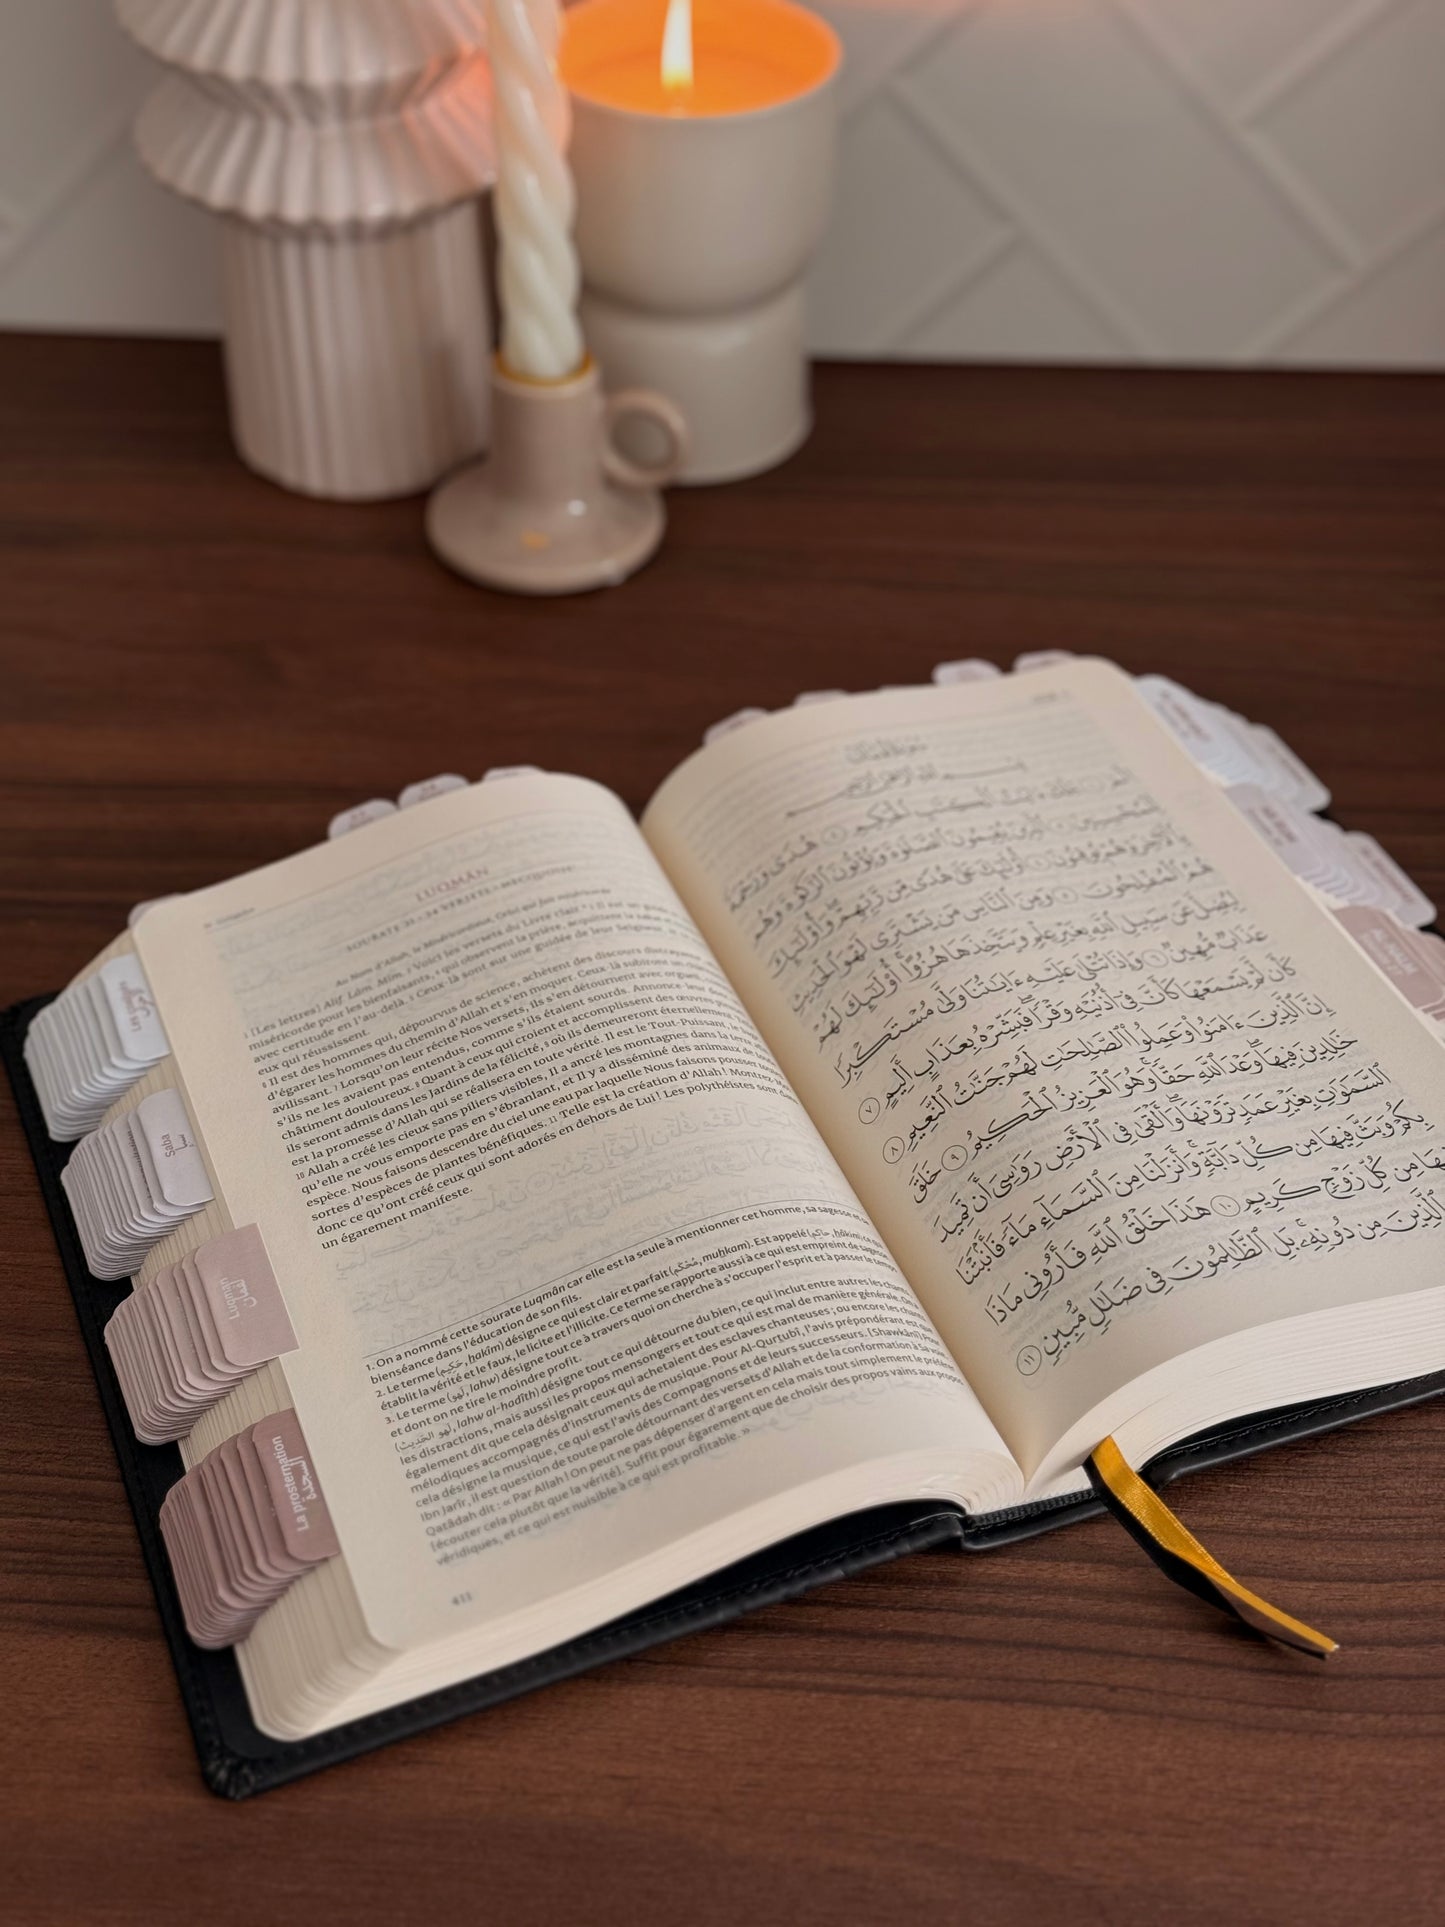 LUQMÂN
SOURATE 31 • 34 VERSETS • MECQUOISE
Au Nom d'Allah, le Miséricordieux, Celui qui fait miséricorde
1 [Les lettres] Alif, Lâm, Mîm. 2 Voici les versets du Livre clair 3 : il est un guide
miséricorde pour les bienfaisants, 4 qui observent la prière, acquittent la
avec certitude en l'au-delà. 5 Ceux-là sont sur une guidée de leur Seigneur,
eux qui réussissent.
6 Il est des hommes qui, dépourvus de science, achètent des discours
d'égarer les hommes du chemin d'Allah et s'en moquer. Ceux-là subiront un
avilissant. 7 Lorsqu'on leur récite Nos versets, ils s'en détournent avec orgueil
s'ils ne les avaient pas entendus, comme s'ils étaient sourds. Annonce-leur
châtiment douloureux. 8 Quant à ceux qui croient et accomplissent des œuvres
ils seront admis dans les Jardins de la félicité, 9 où ils demeureront éternellement.
est la promesse d'Allah qui se réalisera en toute vérité. Il est le Tout-Puissant, le
10 Allah a créé les cieux sans piliers visibles, Il a ancré les montagnes dans la terre
qu'elle ne vous emporte pas en s'ébranlant, et Il y a disséminé des animaux de
espèce. Nous faisons descendre du ciel une eau par laquelle Nous faisons pousser
sortes d'espèces de plantes bénéfiques. 11 Telle est la création d'Allah !
donc ce qu'ont créé ceux qui sont adorés en dehors de Lui ! Les polythéistes sont
un égarement manifeste.
1. On a nommé cette sourate Luqmân car elle est la seule à mentionner cet homme, sa sagesse et
bienséance dans l'éducation de son fils.
2. Le terme (حَكِيم, hakîm) désigne ce qui est clair et parfait (مُحْكَم, muhkam). Est appelé (حاكم, hâkim)
établit la vérité et le faux, le licite et l'illicite. Ce terme se rapporte aussi à ce qui est empreint de sagesse
3. Le terme (لَهْو, lahw) désigne tout ce à travers quoi on cherche à s'occuper l'esprit et à passer le temps
et dont on ne tire le moindre profit.
(لَهْو الحَدِيث, lahw al-hadîth) désigne tout ce qui détourne du bien, ce qui inclut entre autres les
les distractions, mais aussi les propos mensongers et tout ce qui est mal de manière générale.
également dit que cela désignait ceux qui achetaient des esclaves chanteuses ; ou encore les
mélodiques accompagnés d'instruments de musique. Pour Al-Qurtubî, l'avis prépondérant est que
cela désigne la musique, ce qui est l'avis des Compagnons et de leurs successeurs. [Shawkânî]
Ibn Jarîr, il est question de toute parole détournant des versets d'Allah et de la conformation à Sa
Qatâdah dit : « Par Allah ! On peut ne pas dépenser d'argent en cela mais tout simplement le préférer
[écouter cela plutôt que la vérité]. Suffit pour égarement que de choisir des propos vains aux propos
véridiques, et ce qui est nuisible à ce qui est profitable. »
411
Saba
سبإ
Luqmân
لقمان
La prosternation
السجدة
هُدًى وَرَحْمَةً
لِّلْمُحْسِنِينَ ٣ ٱلَّذِينَ يُقِيمُونَ ٱلصَّلَوٰةَ وَيُؤْتُونَ ٱلزَّكَوٰةَ وَهُم
بِٱلْأَخِرَةِ هُمْ يُوقِنُونَ ٤ أُوْلَٰٓئِكَ عَلَىٰ هُدًى مِّن رَّبِّهِمْ ۖ وَأُوْلَٰٓئِكَ
هُمُ ٱلْمُفْلِحُونَ ٥ وَمِنَ ٱلنَّاسِ مَن يَشْتَرِى لَهْوَ ٱلْحَدِيثِ
لِيُضِلَّ عَن سَبِيلِ ٱللَّهِ بِغَيْرِ عِلْمٍ وَيَتَّخِذَهَا هُزُوًا ۚ أُوْلَٰٓئِكَ لَهُمْ
عَذَابٌ مُّهِينٌ ٦ وَإِذَا تُتْلَىٰ عَلَيْهِ ءَايَٰتُنَا وَلَّىٰ مُسْتَكْبِرًا
كَأَن لَّمْ يَسْمَعْهَا كَأَنَّ فِىٓ أُذُنَيْهِ وَقْرًا ۖ فَبَشِّرْهُ بِعَذَابٍ أَلِيمٍ ٧
إِنَّ ٱلَّذِينَ ءَامَنُوا۟ وَعَمِلُوا۟ ٱلصَّٰلِحَٰتِ لَهُمْ جَنَّٰتُ ٱلنَّعِيمِ ٨
خَٰلِدِينَ فِيهَا ۖ وَعْدَ ٱللَّهِ حَقًّا ۚ وَهُوَ ٱلْعَزِيزُ ٱلْحَكِيمُ ٩ خَلَقَ
ٱلسَّمَٰوَٰتِ بِغَيْرِ عَمَدٍ تَرَوْنَهَا ۖ وَأَلْقَىٰ فِى ٱلْأَرْضِ رَوَٰسِىَ أَن تَمِيدَ
بِكُمْ وَبَثَّ فِيهَا مِن كُلِّ دَآبَّةٍ ۚ وَأَنزَلْنَا مِنَ ٱلسَّمَآءِ مَآءً فَأَنۢبَتْنَا
فِيهَا مِن كُلِّ زَوْجٍ كَرِيمٍ ١٠ هَٰذَا خَلْقُ ٱللَّهِ فَأَرُونِى مَاذَا
ٱلَّذِينَ مِن دُونِهِۦ ۚ بَلِ ٱلظَّٰلِمُونَ فِى ضَلَٰلٍ مُّبِينٍ ١١